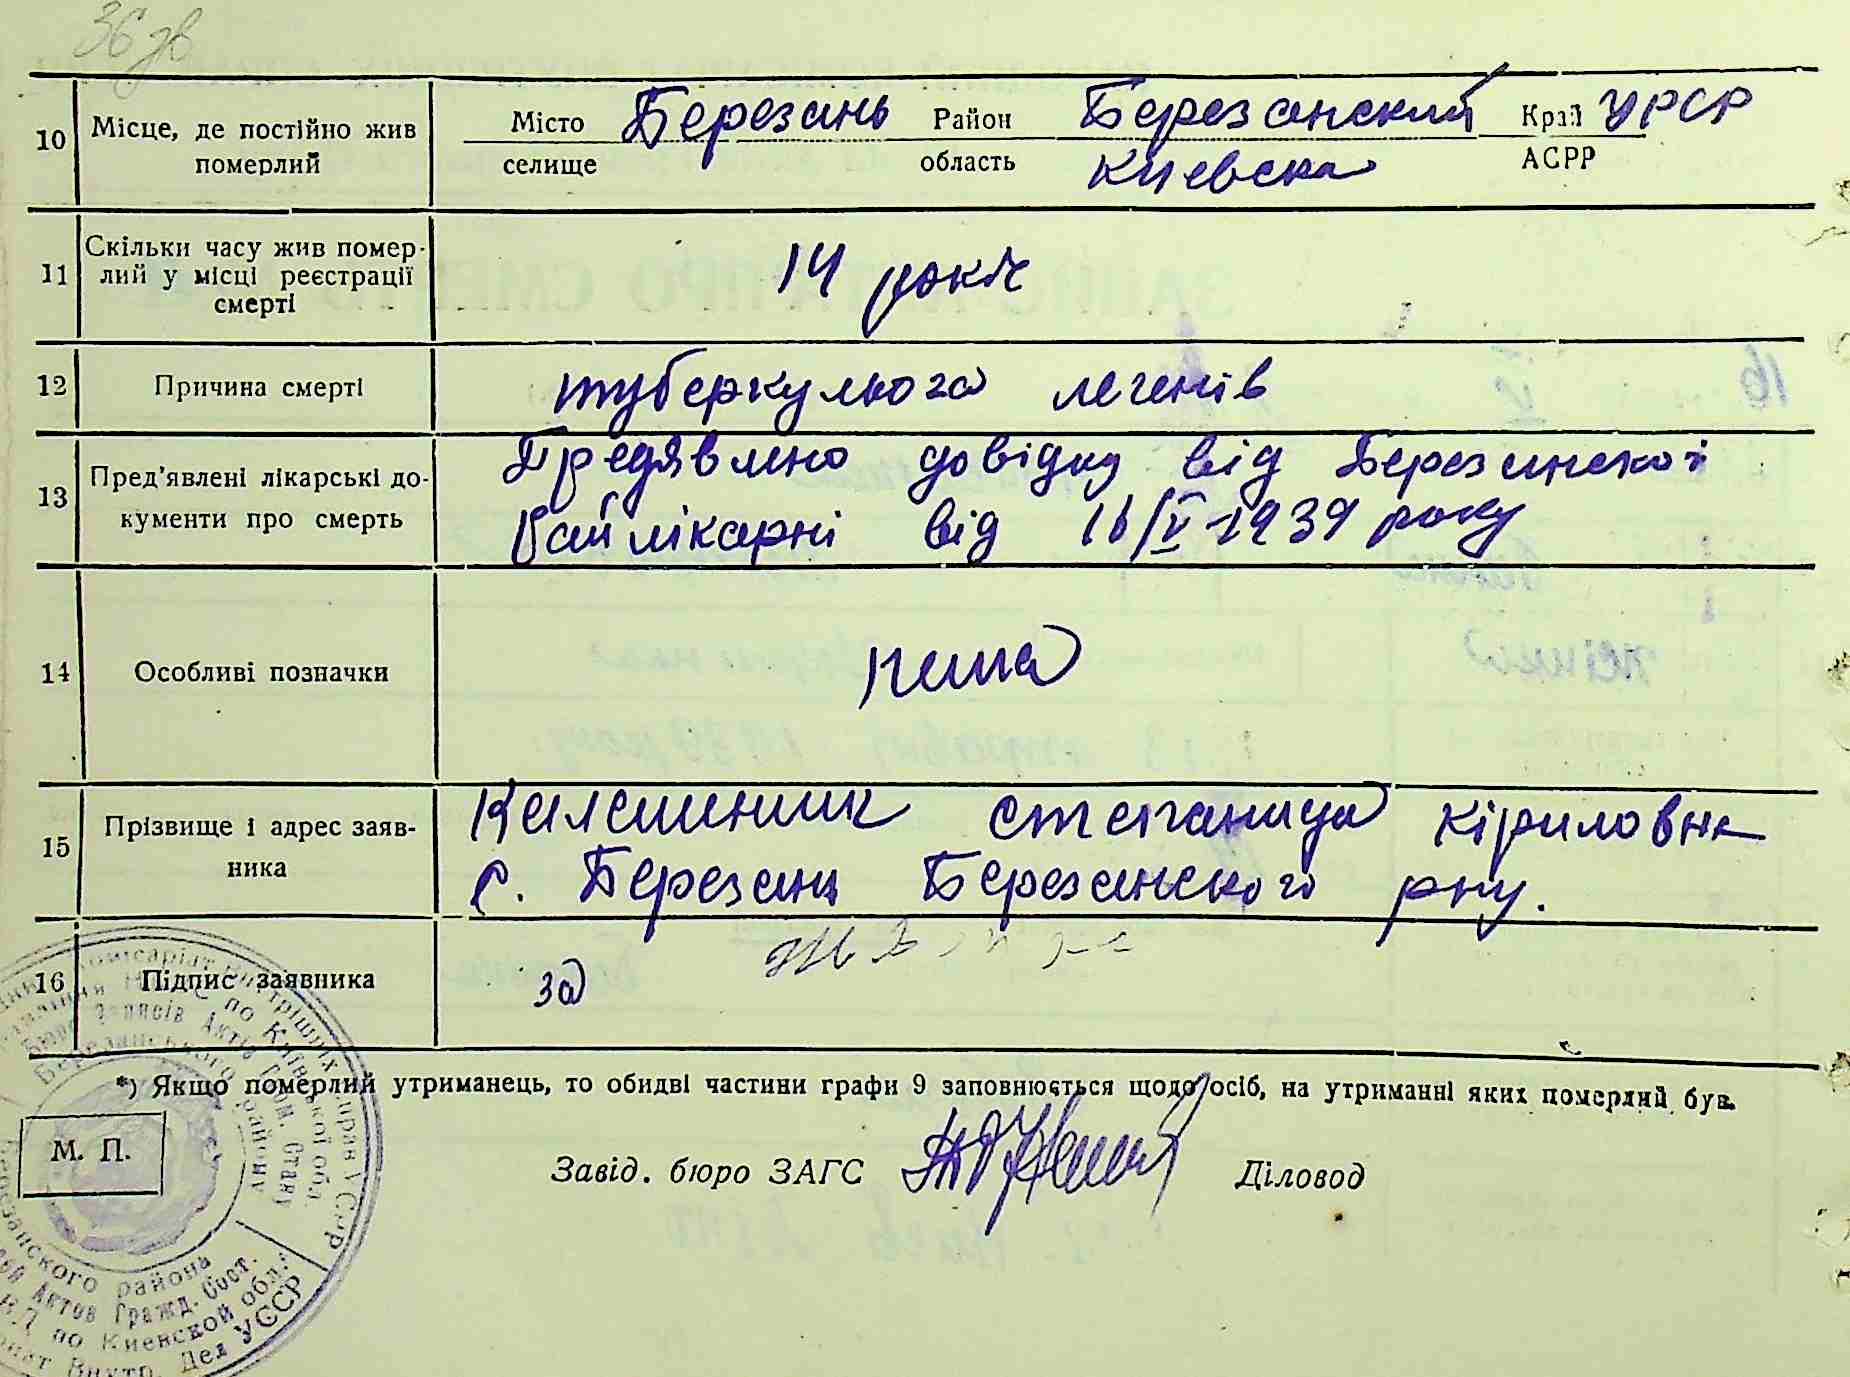 36 зв
10 Місце, де постійно жив померлий Місто селище Березань Район область Березанский Киевска Край АСРР УРСР
11 Скільки часу жив помер-
лий у місці реєстрації
смерті 14 років
12 Причина смерті туберкульоза легенів
13 Пред'явлені лікарські до- Предявлено довідку від Березанскої
кументи про смерть Райлікарні від 16/V-1939 року
14 Особливі позначки нема
15 Прізвище і адрес заяв- Калашник степанида Кіриловна
ника с. Березань Березанского рну.
16 Підпис заявника за
*) Якщо померлий утриманець, то обидві частини графи 9 заповнюється щодо осіб, на утриманні яких померлий був.
М. П.
Завід. бюро ЗАГС Діловод
Березанського району
Бюро Записів Актів Гром. Стану
по Київської обл.
Внутрішніх Справ УСРР
района
Актов Гражд. Сост.
В.Д. по Киевской обл.
Внутр. Дел УССР